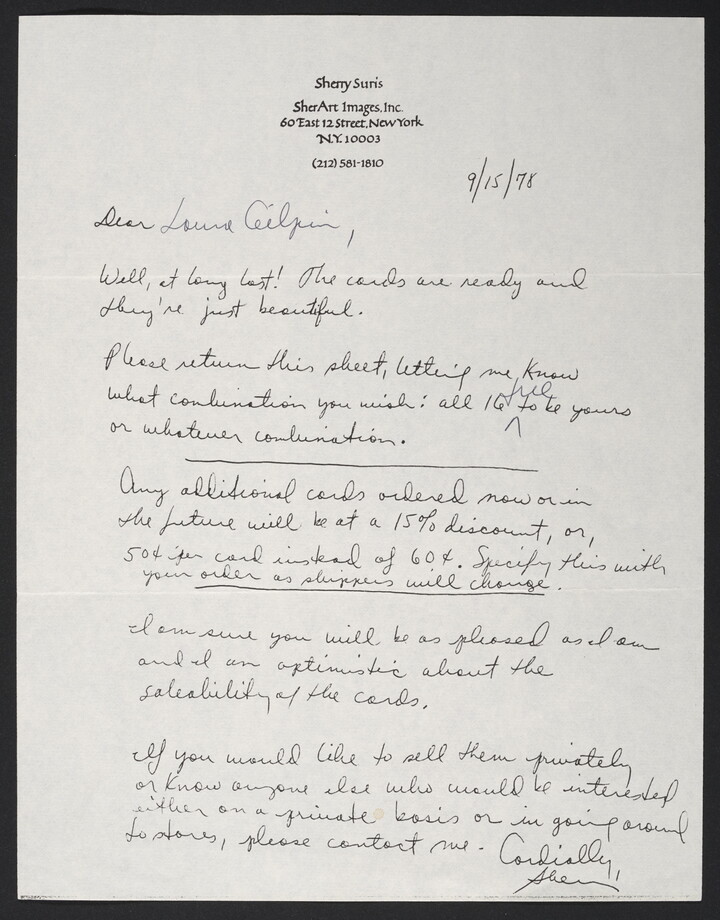 Sherry Suris
SherArt Images, Inc.
60 East 12 Street, New York
N.Y. 10003
(212) 581-1810
9/15/78
Dear Laura Gilpin,
Well, at long last! The cards are ready and
they're just beautiful.
Please return this sheet, letting me know
free
what combination you wish: all 16 ^ to be yours
or whatever combination.
Any additional cards ordered now or in
the future will be at a 15% discount, or,
50¢ per card instead of 60¢. Specify this with
your order as shippers will change.
I am sure you will be as pleased as I am
and I am optimistic about the
saleability of the cards.
If you would like to sell them privately
or know anyone else who would be interested
either on a private basis or in going around
to stores, please contact me.
Cordially,
Sherry